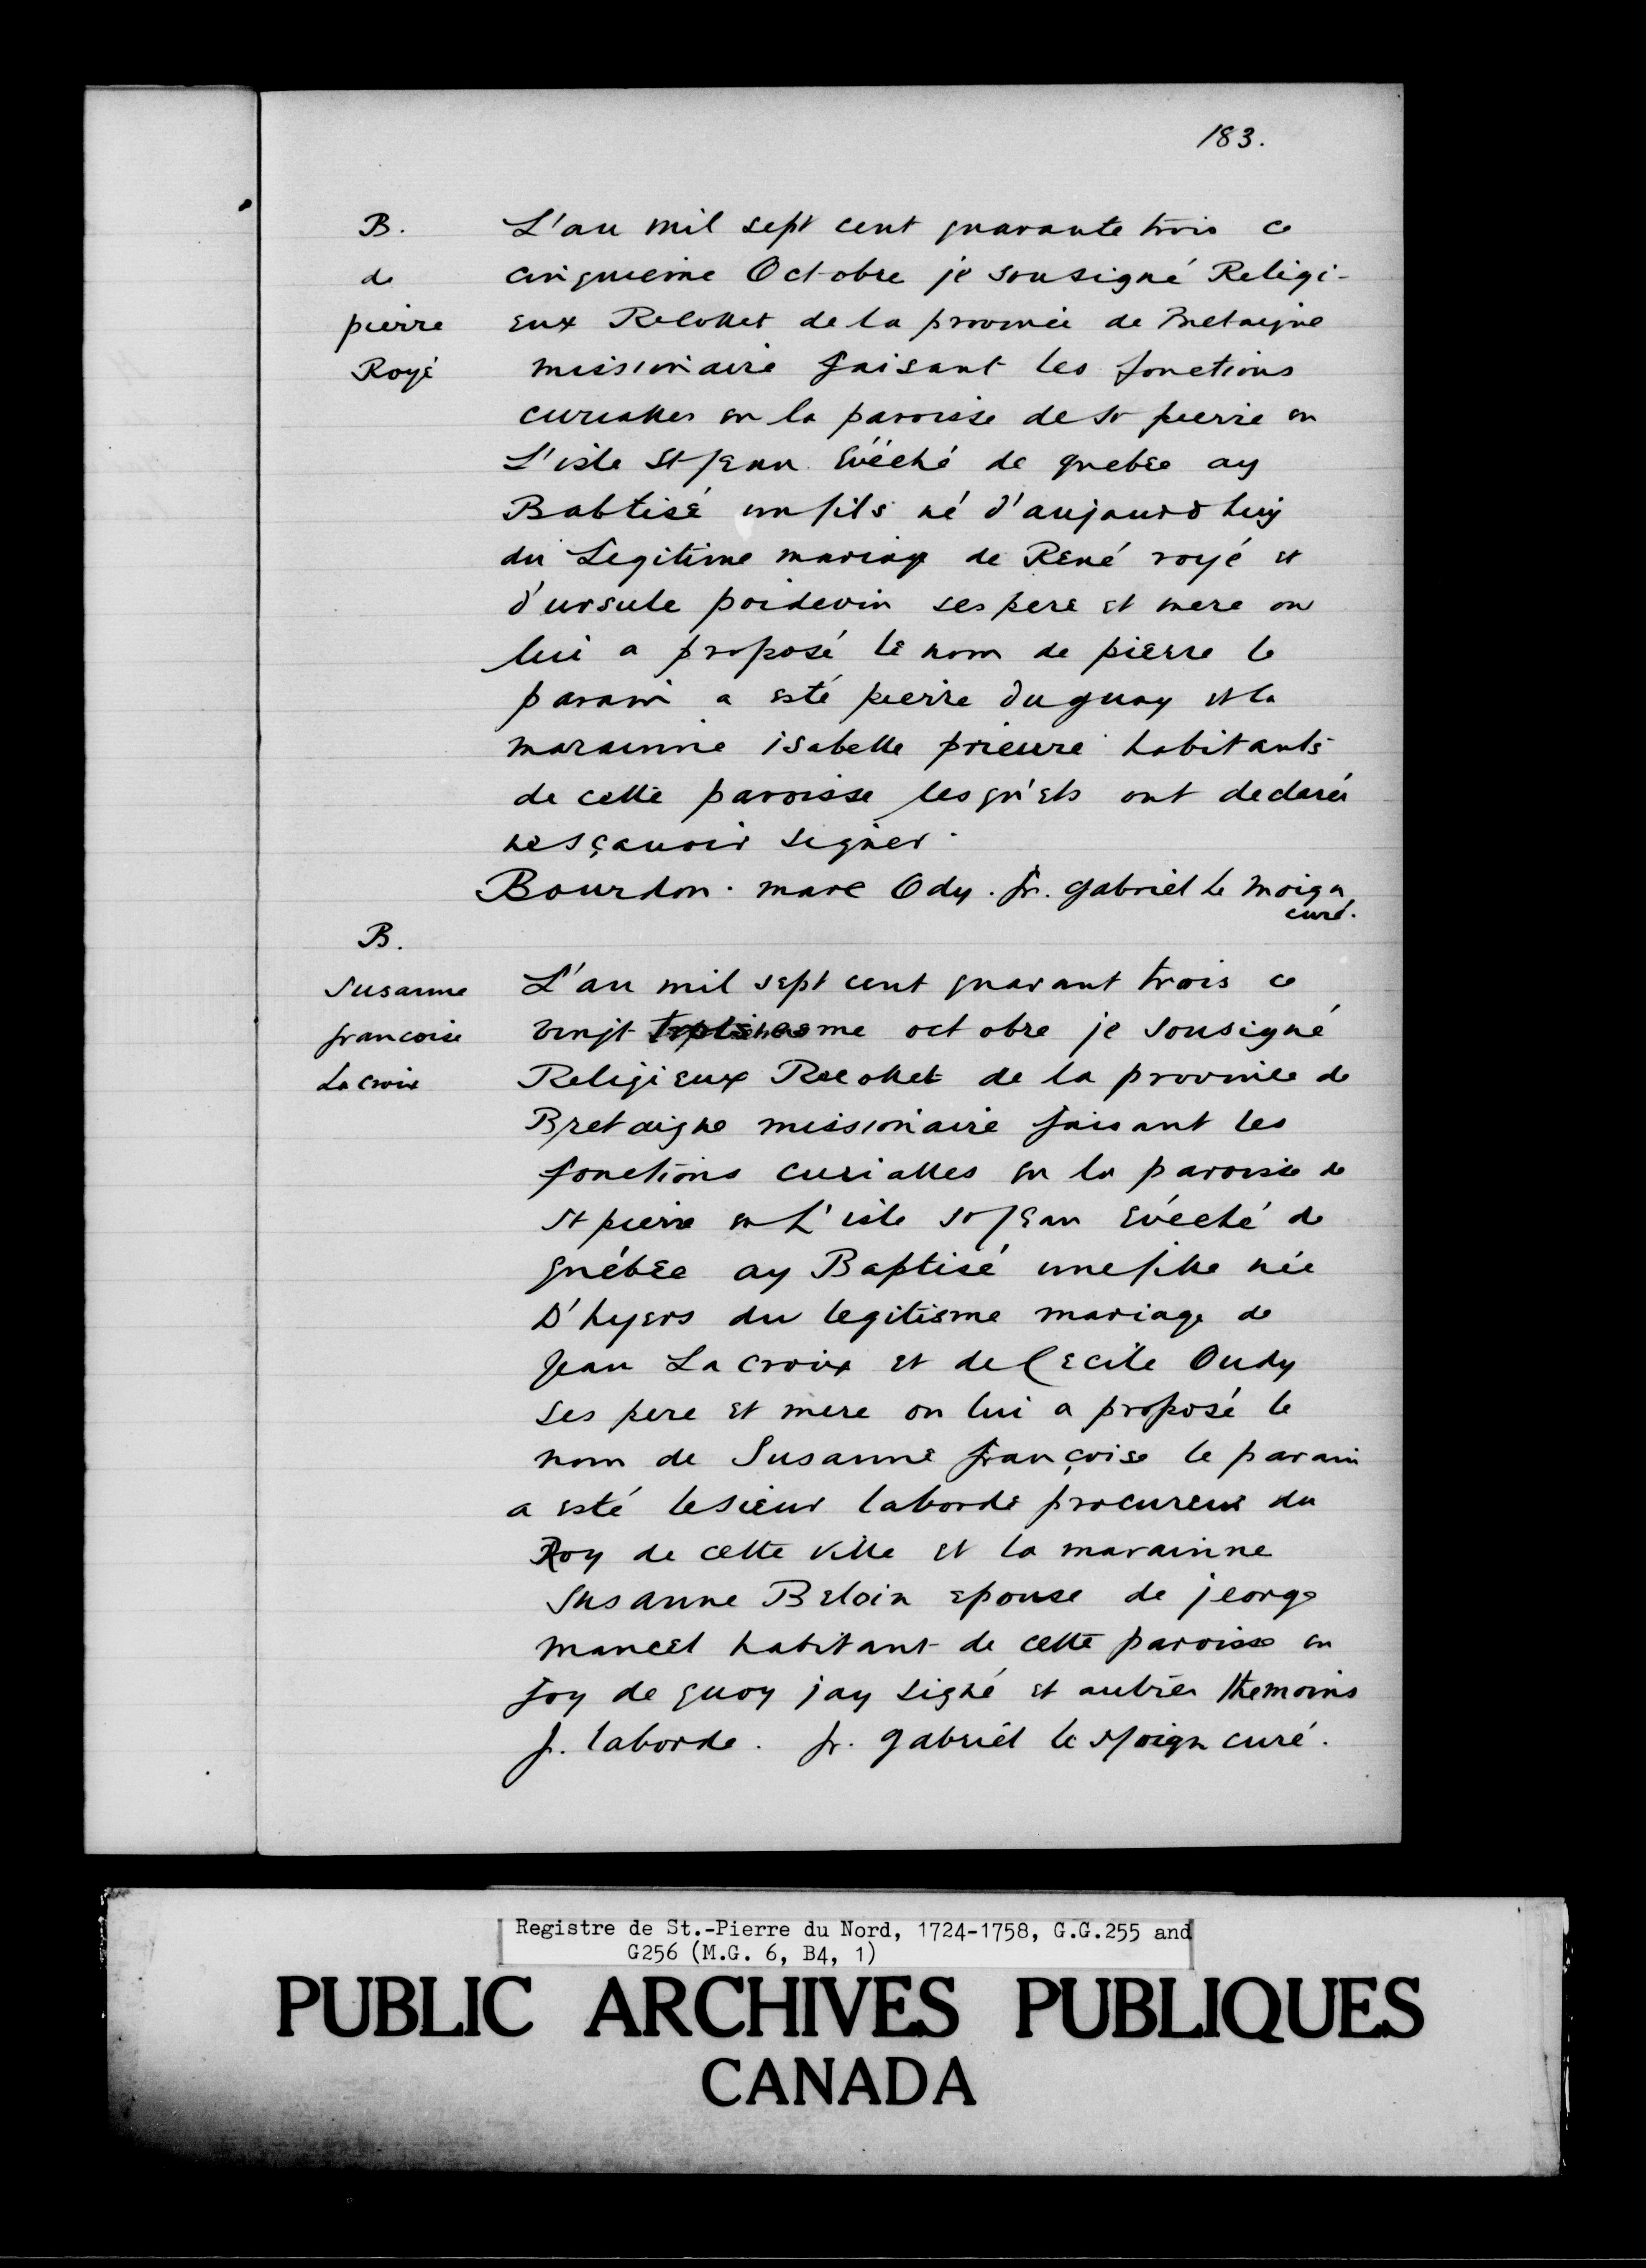 183.
B.
de
pierre
Royé
L'an mil sept cent quarante trois ce
cinquieme Octobre je sousigné Religi-
eux Recollet de la province de Bretaigne
missionaire faisant les fonctions
curialles en la paroisse de St pierre en
L'isle St Jean Evêché de quebec ay
Babtisé un fils né d'aujourd huy
du Legitime mariage de René royé et
d'ursule poidevin ses pere et mere on
lui a proposé le nom de pierre le
parain a esté pierre duguay et la
marainne isabelle prieure habitants
de cette paroisse lesquels ont declarés
ne sçauvoir signer.
Bourdon. marc Ody. fr. gabriel le moign
curé.
B.
Susanne
francoise
Lacroix
L'an mil sept cent quarant trois ce
vingt me octobre je Sousigné
Religieux Recollet de la province de
Bretaigne missionaire faisant les
fonctions curialles en la paroisse de
St pierre en L'isle St Jean Evéché de
québec ay Baptisé une fille née
D'hyers du legitisme mariage de
Jean Lacroix et de Cecile Oudy
Ses pere et mere on lui a proposé le
nom de Susanne françoise le parain
a esté le sieur laborde procureur du
Roy de cette ville et la marainne
Susanne Beloin epouse de jeorge
mancel habitant de cette paroisse en
foy de quoy jay signé et autrés themoins
f. laborde. fr. gabriel le Moign curé.
Registre de St.-Pierre du Nord, 1724-1758, G.G.255 and
G256 (M.G. 6, B4, 1)
PUBLIC ARCHIVES PUBLIQUES
CANADA